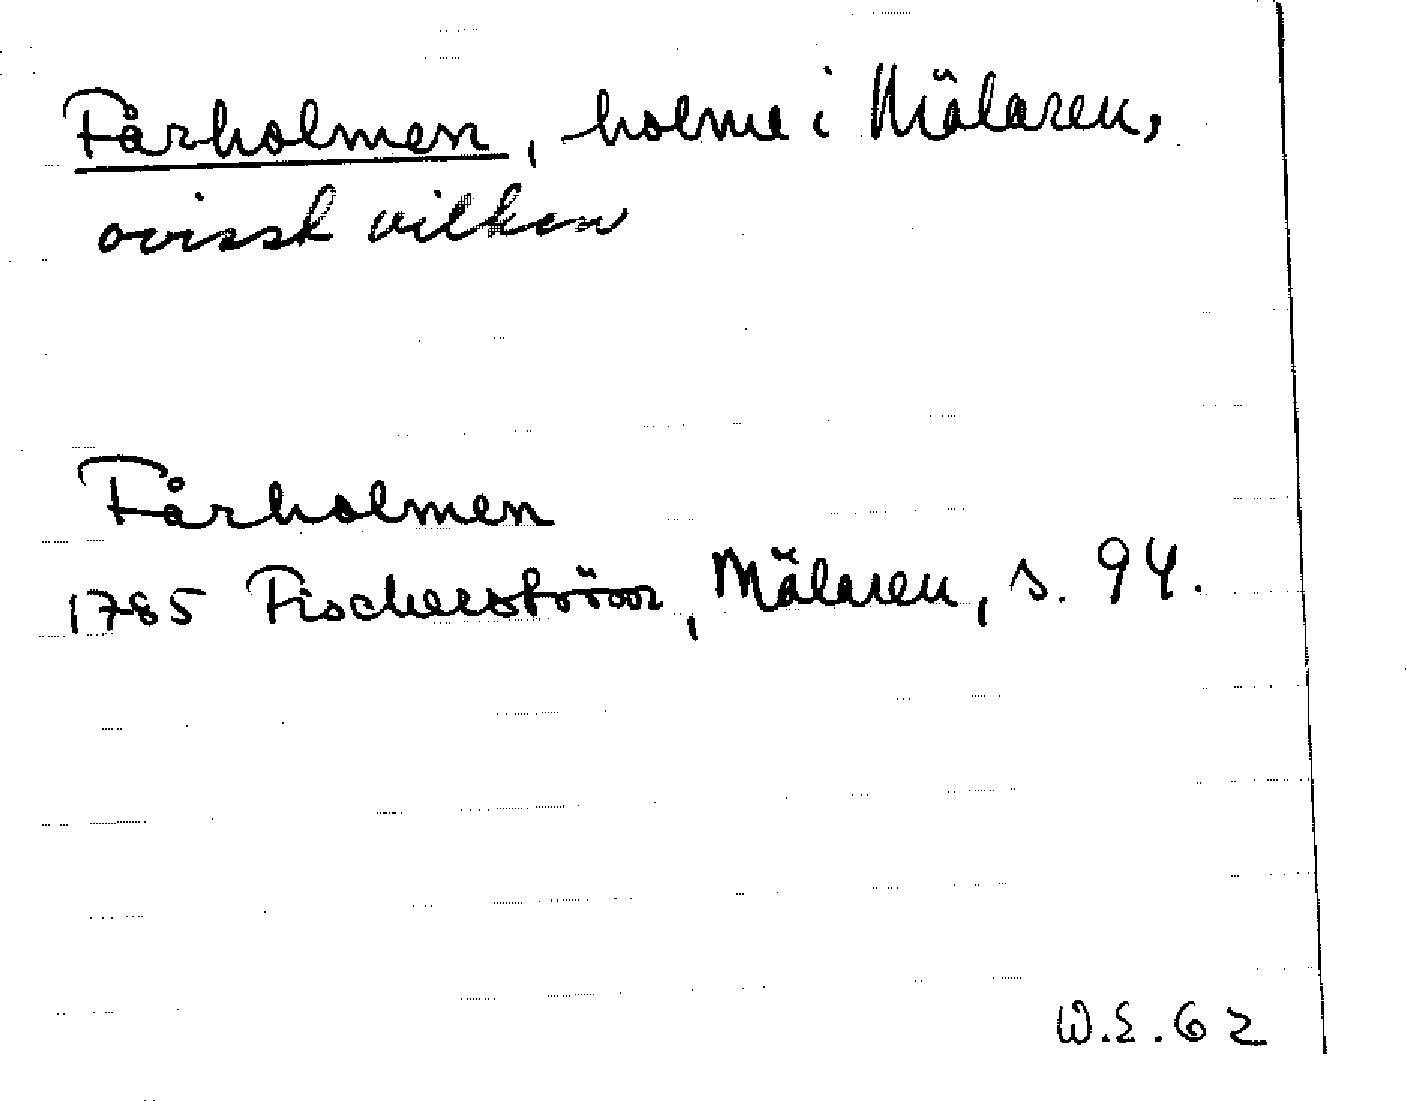 Fårholmen, holme i Mälaren,
ovisst vilken
Fårholmen
1785 Fischerström, Mälaren, s. 94.
W.E. 62